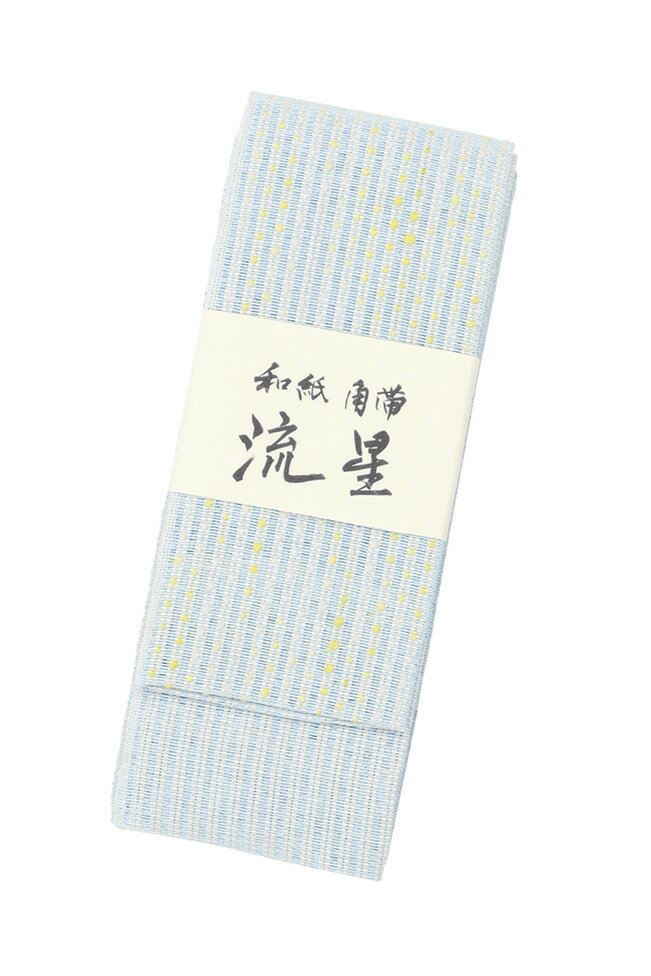 和紙 角帯
流星